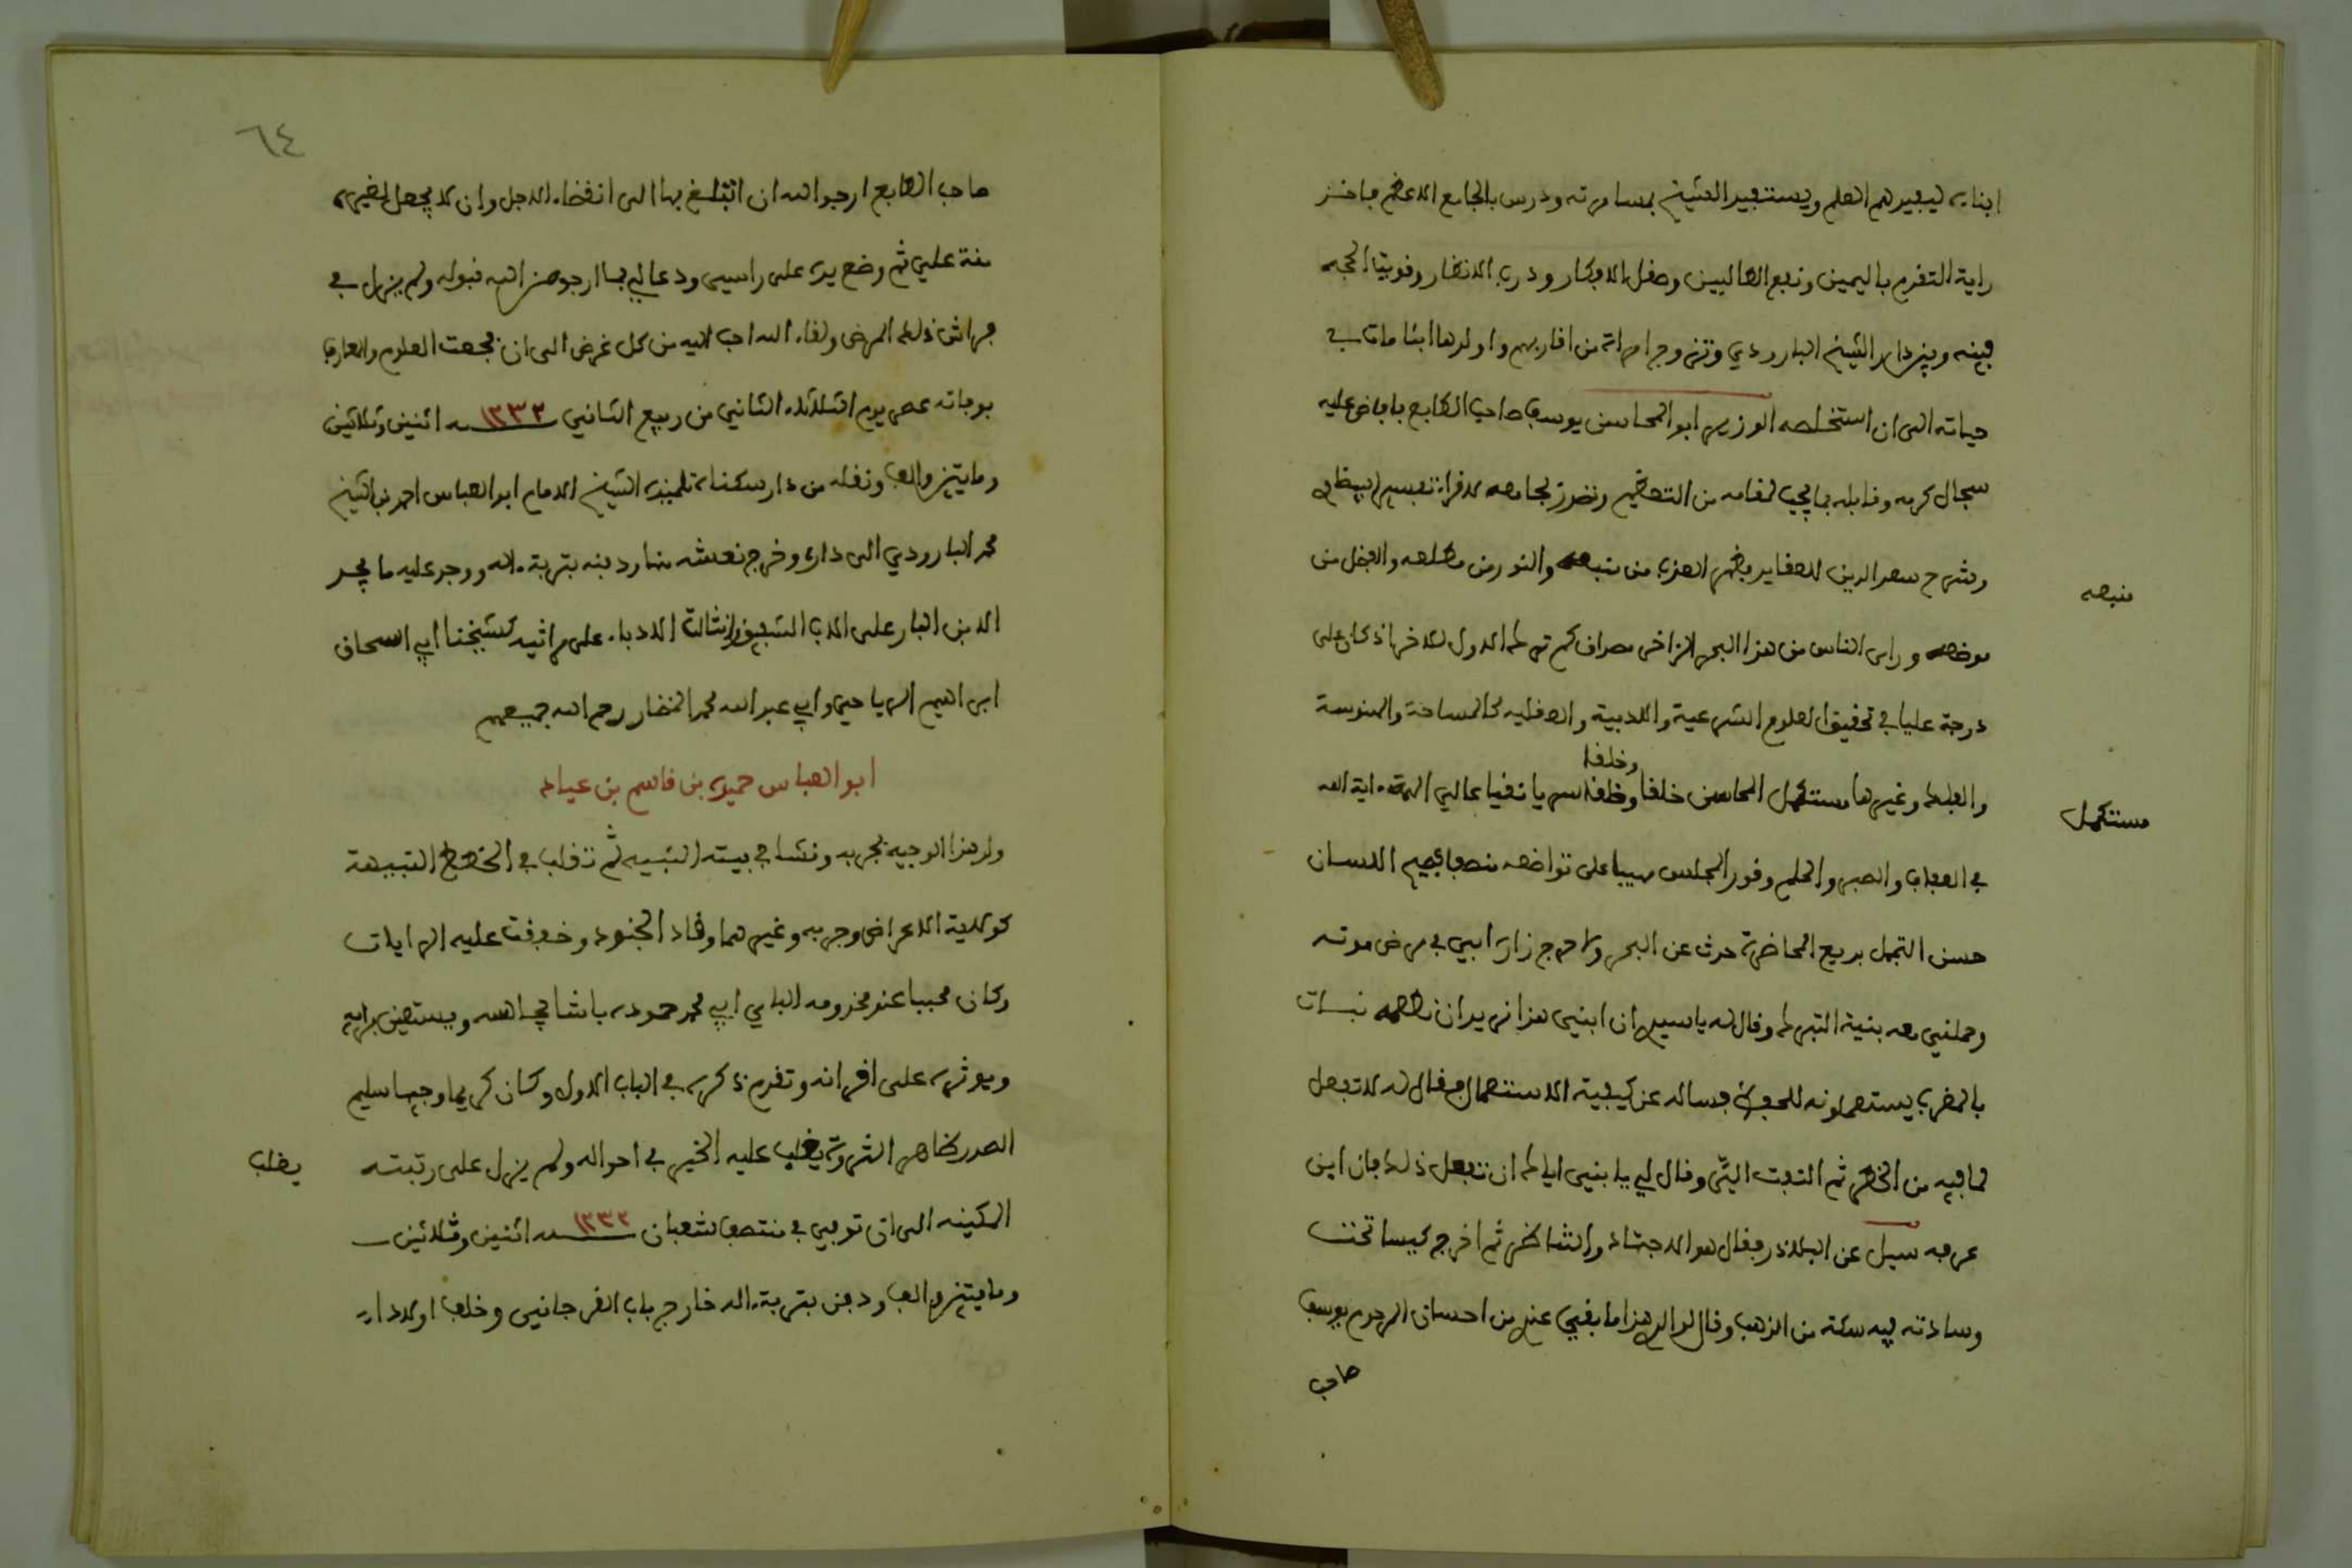 ابنايه ليفيدهم العلم ويستفيد الشيخ بمسامرته ودرس بالجامع الاعظم فاخذ
راية التقدم باليمين ونفع الطالبين وصقل الافكار ودرب الانظار وقويت المحبة
بينه وبين دار الشيخ البارودي وتزوج امراة من اقاربهم واولدها ابنا مات في
حياته الى ان استخلصه الوزير ابو المحاسن يوسف صاحب الطابع بافاض عليه
سجال كرمه وقابله بما يجب لمقامه من التعظيم وتصدر بجامعه لاقراء تفسير البيضاوي
وشرح سعد الدين للعقايد فظهر العذب من منبعه والنور من مطلعه والفضل من
منبعه
موضعه وراى الناس من هذا البحر الزاخر مصداق كم ترك الاول للاخر اذ كان على
درجة عليا في تحقيق العلوم الشرعية والادبية والعقلية كالمساحة والهندسة
وخلقا
والفلك وغيرها مستكمل المحاسن خلقا وخلقا سريا تقيا عالي الهمة اية الله
مستكمل
في العفاف والصبر والحلم وقور المجلس مهيبا على تواضعه منصفا فصيح اللسان
حسن التجمل بديع المحاضرة حدث عن البحر ولا حرج زاره ابي في مرض موته
وحملني معه بنية التبرك وقال له يا سيدي ان ابني هذا نريد ان نطعمه نبات
بالمغرب يستعملونه للحفظ فساله عن كيفية الاستعمال فقال له لا تفعل
لما فيه من الخطر ثم التفت الي وقال لي يا بني اياك ان تفعل ذلك فان ابن
عرفه سيل عن البلاذر فقال هو الاجتهاد والشاطر ثم اخرج كيسا تحت
وسادته فيه سكة من الذهب وقال لوالدي هذا ما بقي عندي من احسان المرحوم يوسف
صاحب
٦٤
صاحب الطابع ارجو الله ان اتبلغ بها الى انقضاء الاجل وان لا يجعل لغيره
منة علي ثم وضع يده على راسي ودعا لي بما ارجو من الله قبوله ولم يزل في
فراش ذلك المرض ولقاء الله احب اليه من كل غرض الى ان فجعت العلوم والمعارف
بوفاته عصر يوم الثلاثاء الثاني من ربيع الثاني سنة ١٢٣٢ اثنين وثلاثين
ومايتين والف ونقله من دار سكناه تلميذه الشيخ الامام ابو العباس احمد بن الشيخ
محمد البارودي الى داره وخرج نعشه منها ودفنه بتربة اله ووجد عليه ما يجد
الابن البار على الاب الشفيق وانثالت الادباء على مراثيه كشيخنا ابي اسحاق
ابراهيم الرياحي وابي عبد الله محمد الخضار رحم الله جميعهم
ابو العباس حميده بن قاسم بن عياد
ولد هذا الوجيه بجربه ونشا في بيته النبيه ثم تقلب في الخطط النبيهة
كولاية الاعراض وجربه وغيرهما وقاد الجنود وخفقت عليه الرايات
وكان محببا عند مخدومه الباي ابي محمد حموده باشا يجالسه ويستعين برايه
ويوثره على اقرانه وتقدم ذكره في الباب الاول وكان كريما وجيها سليم
الصدر ظاهر الثروة يغلب عليه الخير في احواله ولم يزل على رتبته
يغلب
المكينه الى ان توفي في منتصف شعبان سنة ١٢٣٢ اثنين وثلاثين
ومايتين والف ودفن بتربة اله خارج باب القرجاني وخلف اولادا